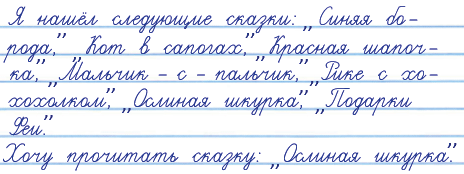 Я нашёл следующие сказки: „Синяя бо-
рода”, „Кот в сапогах”, „Красная шапоч-
ка”, „Мальчик - с - пальчик”, „Рике с хо-
хохолком”, „Ослиная шкурка”, „Подарки
Феи”.
Хочу прочитать сказку: „Ослиная шкурка”.